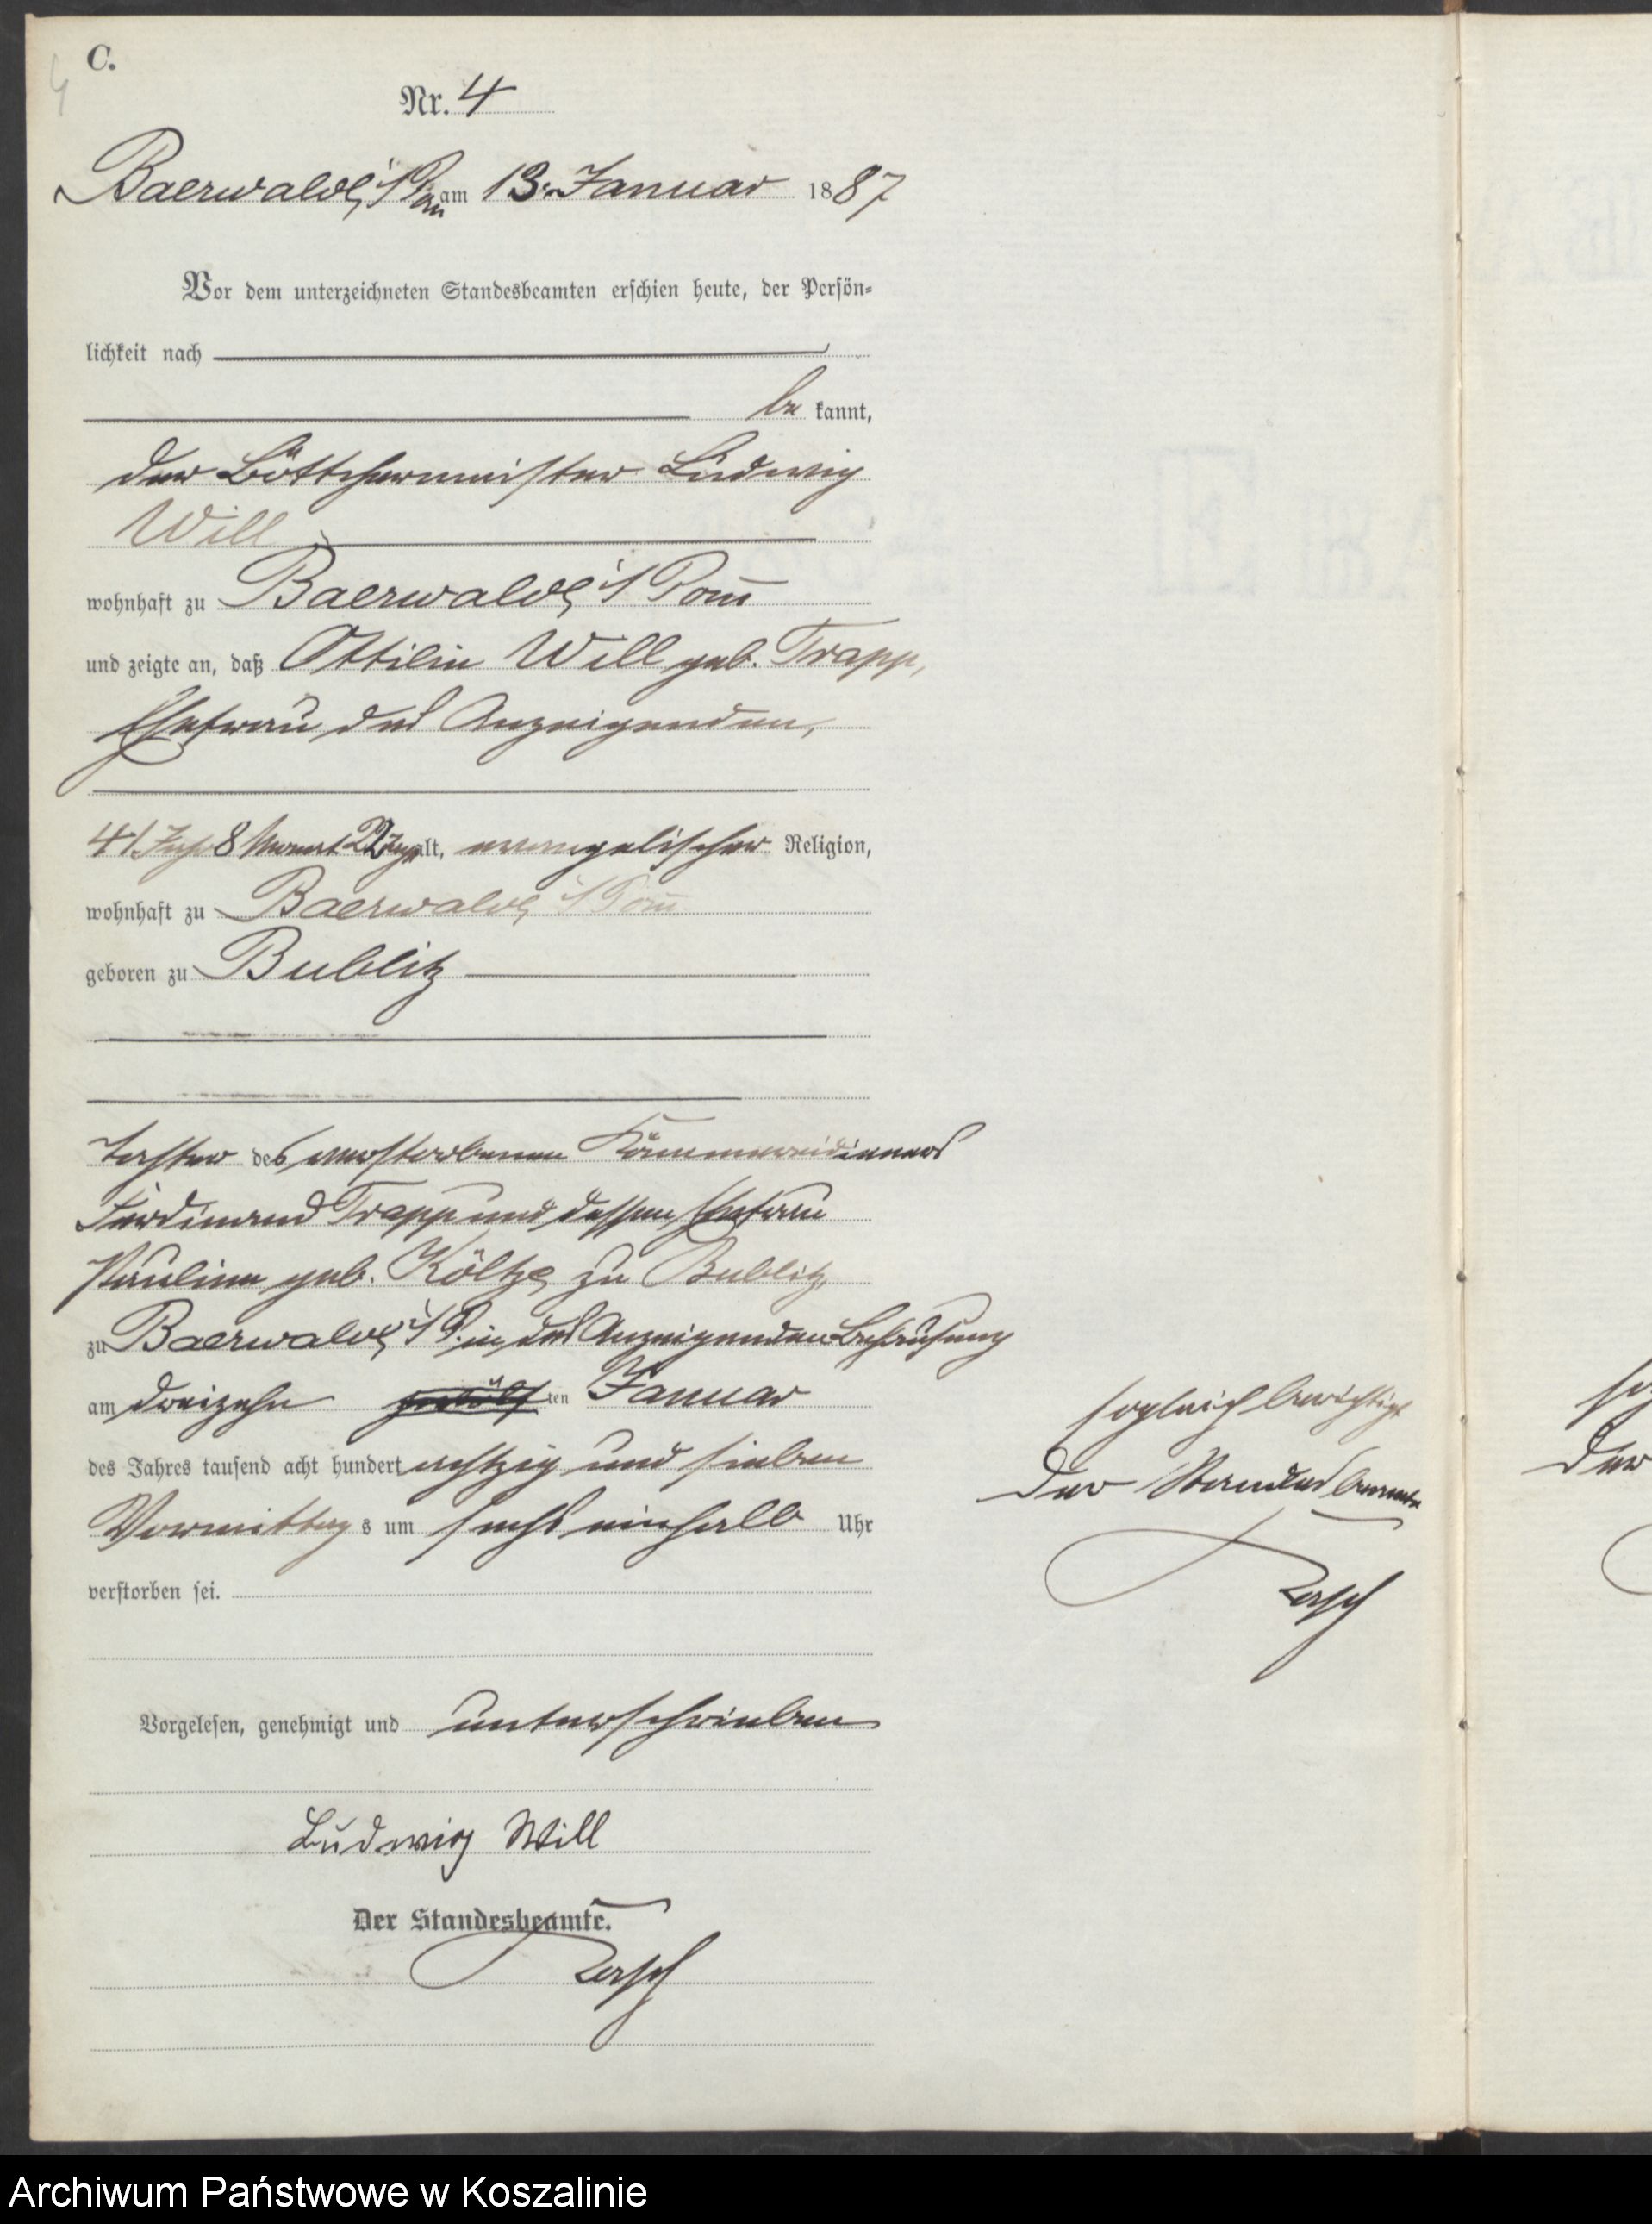 C.
4
Nr. 4
Baerwalde i/Pom am 13. Januar 1887
Vor dem unterzeichneten Standesbeamten erschien heute, der Persön-
lichkeit nach
be kannt,
der Böttchermeister Ludwig
Will
wohnhaft zu Baerwalde i/Pom
und zeigte an, daß Ottilie Will geb. Trapp,
Ehefrau des Anzeigenden,
41 Jahr 8 Monat 22 Tage alt, evangelischer Religion,
wohnhaft zu Baerwalde i/Pom
geboren zu Bublitz
Tochter des verstorbenen Kämmereidieners
Ferdinand Trapp und dessen Ehefrau
Pauline geb. Költze zu Bublitz
zu Baerwalde i/P. in des Anzeigenden Behausung
am dreizehn zwölf ten Januar
des Jahres tausend acht hundert achtzig und sieben
Vormittag s um sechs einhalb Uhr
verstorben sei.
sogleich berichtigt
Der Standesbeamte
Vorgelesen, genehmigt und unterschrieben
Ludwig Will
Der Standesbeamte.
Archiwum Państwowe w Koszalinie